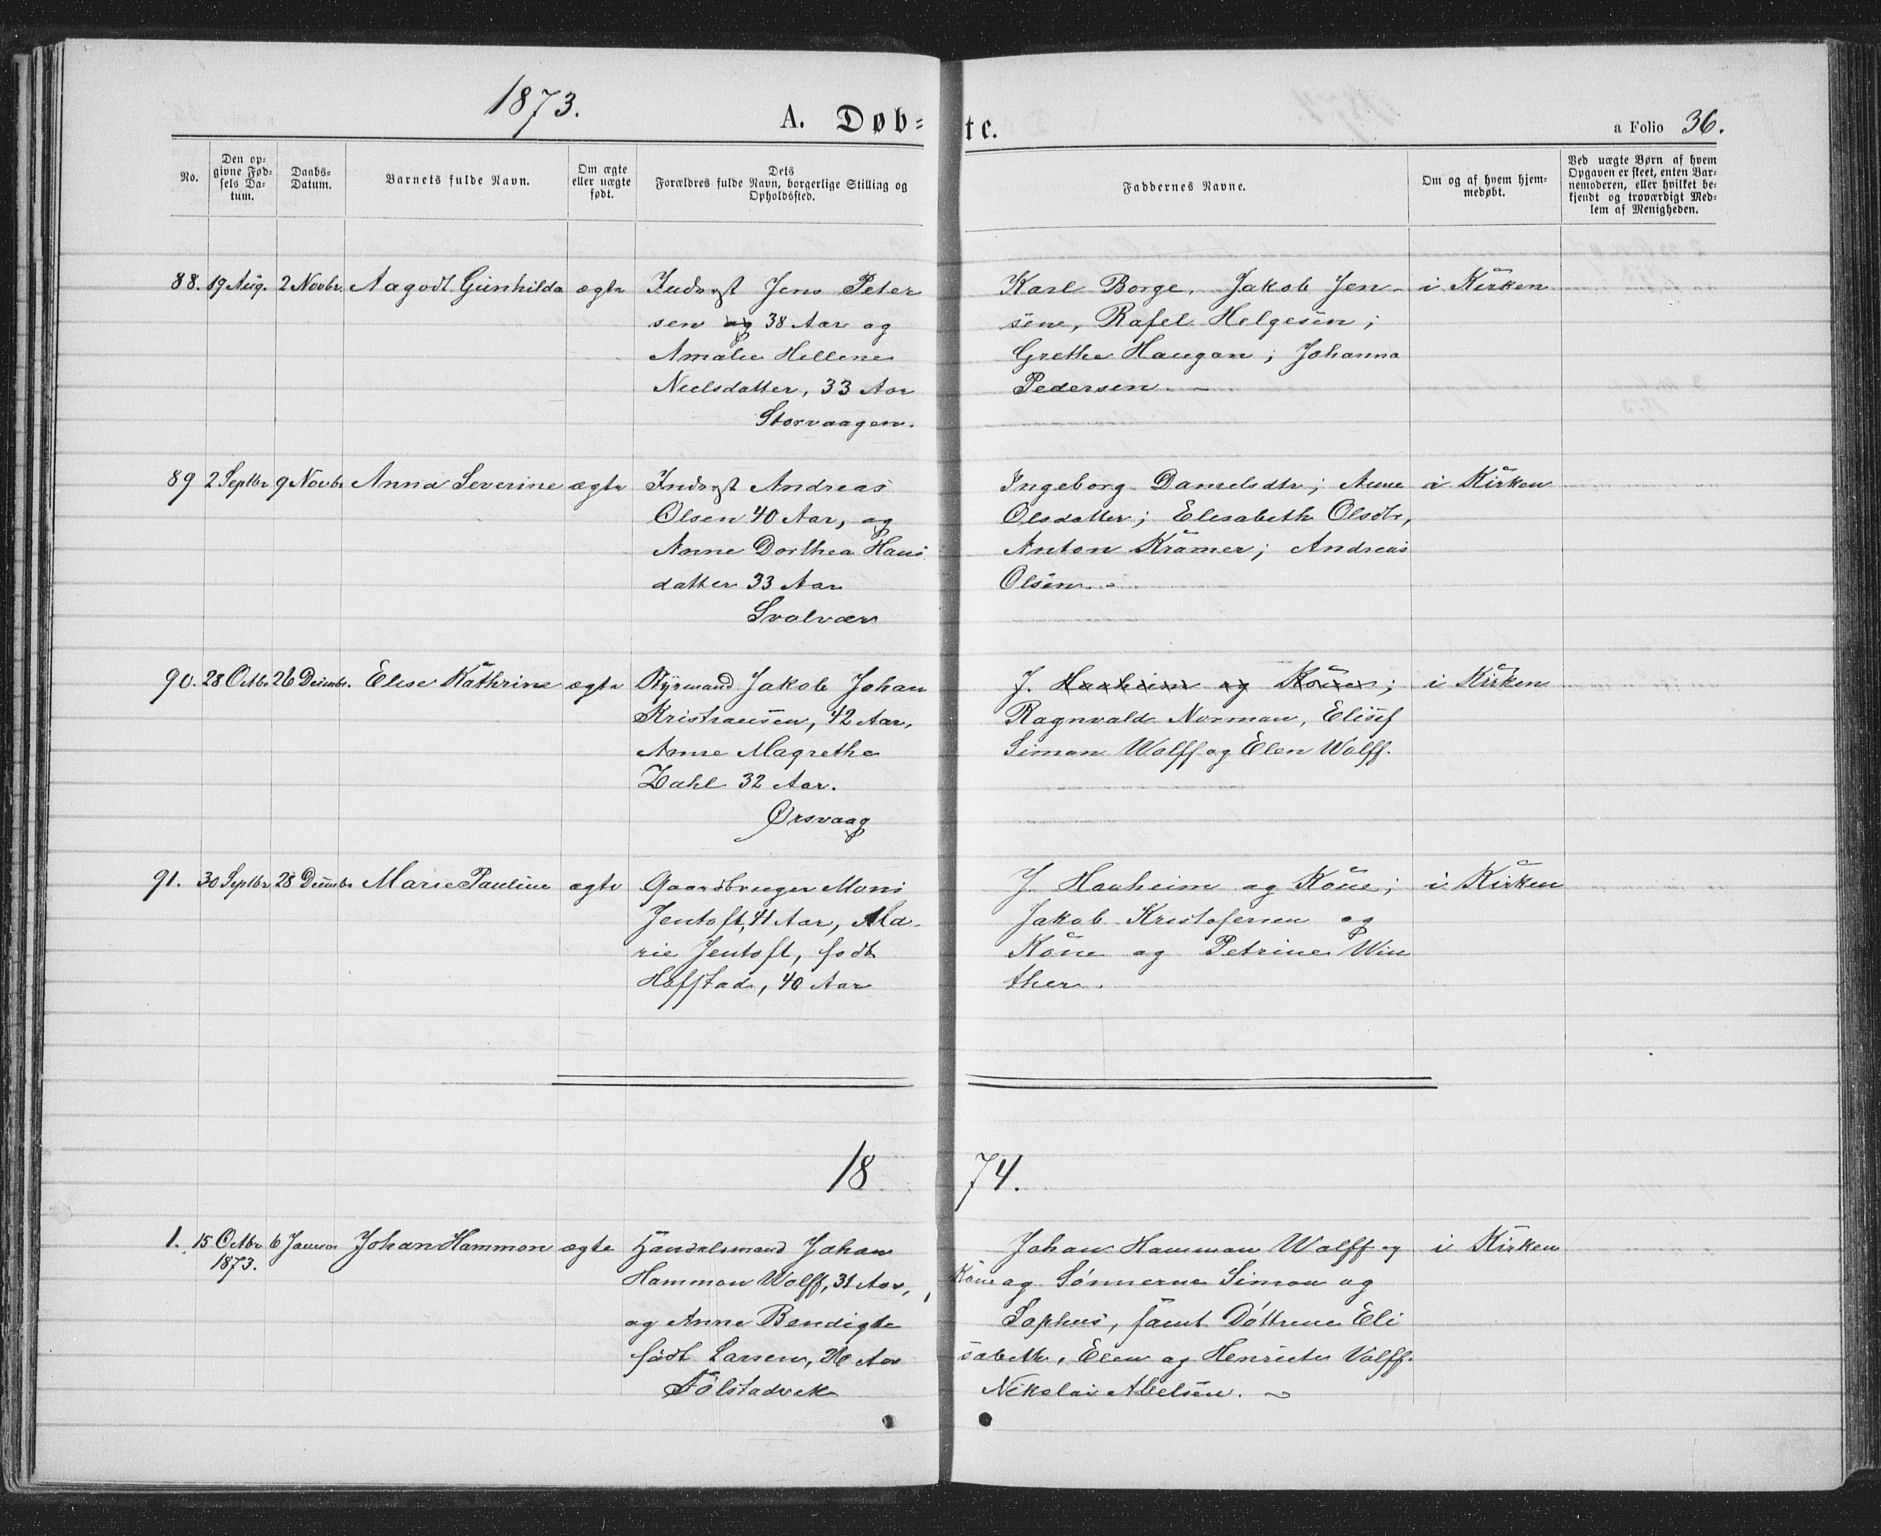 1873.
A. Døb=
te.
a Folio 36.
No.
Den op=
givne Fød=
sels Da=
tum.
Daabs=
Datum.
Barnets fulde Navn.
Om ægte
eller uægte
født.
Dets
Forældres fulde Navn, borgerlige Stilling og
Opholdssted.
Faddernes Navne.
Om og af hvem hjem=
medøbt.
Ved uægte Børn af hvem
Opgaven er skeet, enten Bar=
nemoderen, eller hvilket be=
kjendt og troværdigt Med=
lem af Menigheden.
88. 19 Aug. 2 Novbr. Aagodt Gunhilda ægte Indrgst Jens Peter
sen og 38 Aar og
Amalie Hellene
Nielsdatter, 33 Aar
Storvaagen.
Karl Borge, Jakob Jen-
sen, Rafel Helgesen;
Grethe Haugan; Johanna
Pedersen.
i Kirken
89 2 Septbr 9 Novbr Anna Severine ægte Indrgst Andreas
Olsen 40 Aar, og
Anne Dorthea Hans
datter 33 Aar
Svolvær
Ingeborg Danielsdtr; Anne
Olsdatter; Elisabeth Olsdtr,
Anton Kramer; Andreas
Olsen.
i Kirken
90. 28 Octbr 26 Decembr. Elise Kathrine ægte Styrmand Jakob Johan
Kristiansen, 42 Aar,
Anne Magrethe
Zahl 32 Aar.
Ørsvaag
J. Haaheim og Kone;
Ragnvald Norman, Elisef
Simon Wolff og Elen Wolff.
i Kirken
91. 30 Septbr 28 Decembr Marie Pauline ægte Gaardbruger Mons
Jentoft, 41 Aar, Ma-
rie Jentoft, født
Hofstad, 40 Aar
J. Haaheim og Kone;
Jakob Kristofersen og
Kone og Petrine Win
ther.
i Kirken
1874.
1. 15 Octbr 6 Januar Johan Hammon ægte Handelsmand Johan
1873.
Hammon Wolff, 31 Aar,
og Anne Bendigte
født Larsen, 26 Aar
Følstadvik
Johan Hammon Wolff og
Kone og Sønnerne Simon og
Sophus, samt Døttrene Eli
sabeth, Elen og Henriette Wolff.
Nikolai Abelsen.
i Kirken